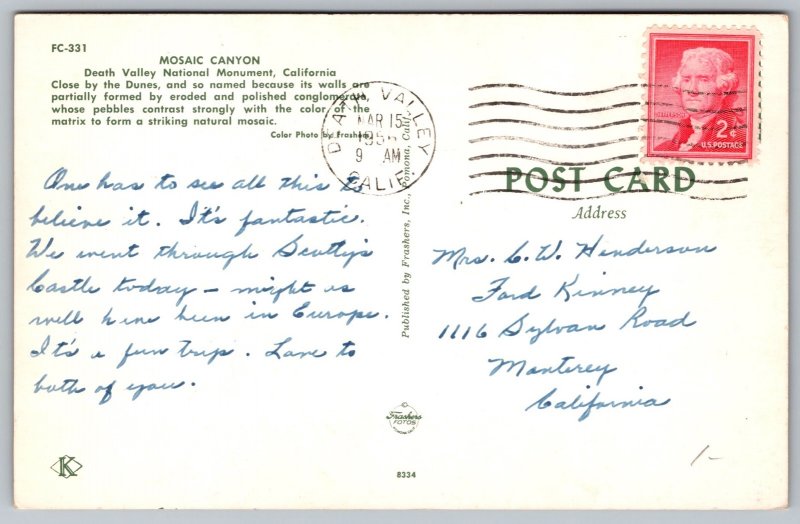 FC-331
MOSAIC CANYON
Death Valley National Monument, California
Close by the Dunes, and so named because its walls are
partially formed by eroded and polished conglomerate,
whose pebbles contrast strongly with the color of the
matrix to form a striking natural mosaic.
Color Photo by Frashers
One has to see all this to
believe it. It's fantastic.
We went through Scotty's
Castle today – might as
well have been in Europe.
It's a fun trip. Love to
both of you.
K
DEATH VALLEY
MAR 15
9 AM
CALIF.
Published by Frashers, Inc., Pomona, Calif.
Frashers
FOTOS
8334
2¢
U.S. POSTAGE
POST CARD
Address
Mrs. C. W. Henderson
Ford Kinney
1116 Sylvan Road
Monterey
California
1-